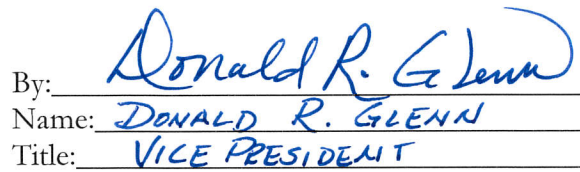 By: Donald R. Glenn
Name: DONALD R. GLENN
Title: VICE PRESIDENT